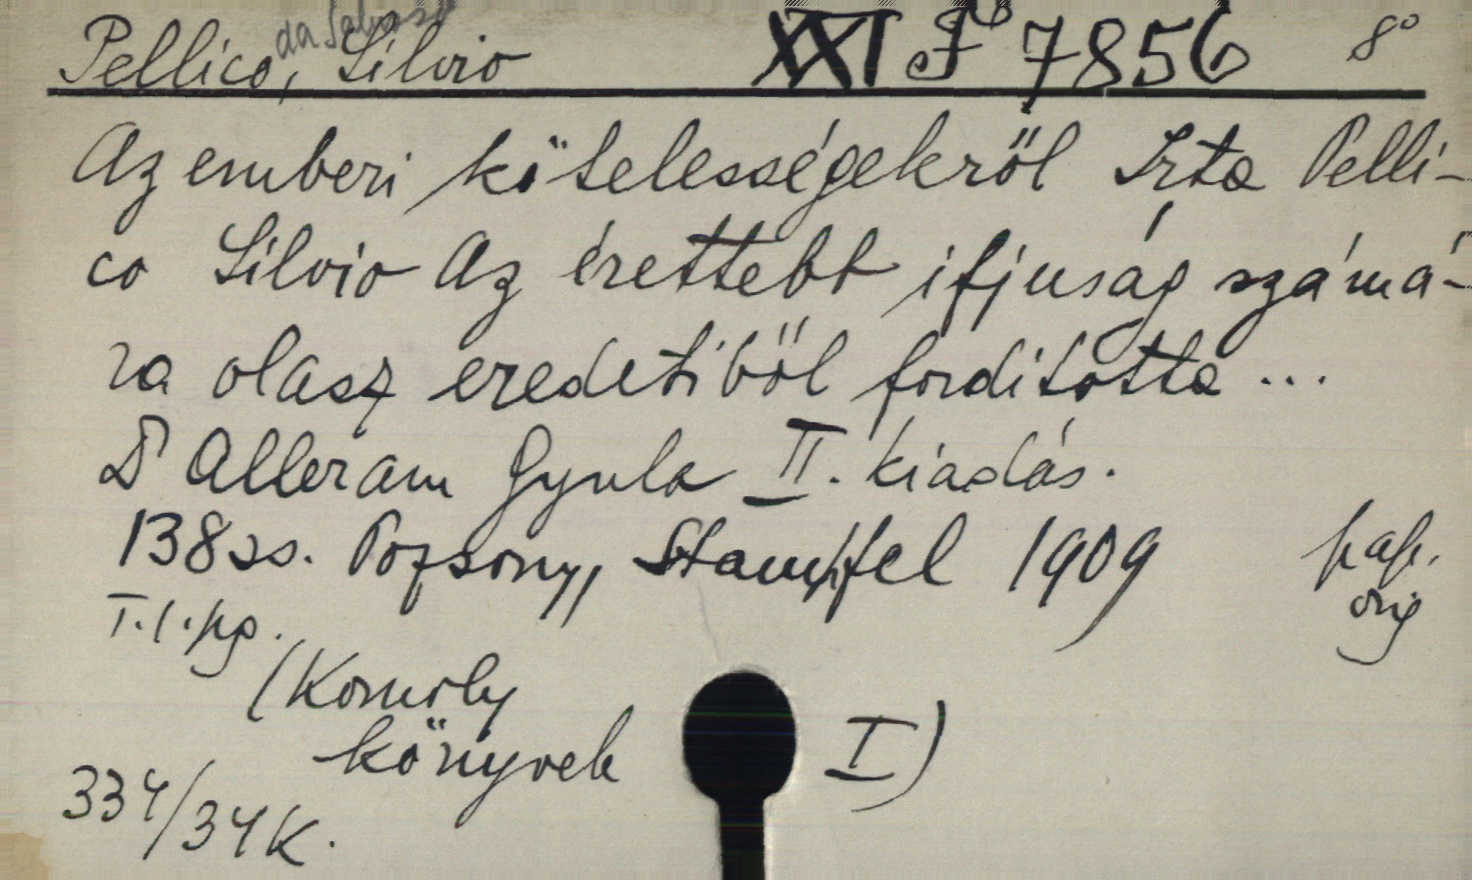 Pellico, Silvio XXI J 7856 8°
Az emberi kötelességekről Irta Pelli-
co Silvio Az érettebb ifjuság számá-
ra olasz eredetiből fordította ...
Dr Alleram Gyula II. kiadás.
138 ss. Pozsony, Stampfel 1909 pap.
orig
T.l. pg.
(Komoly
könyvek I)
334/34 K.